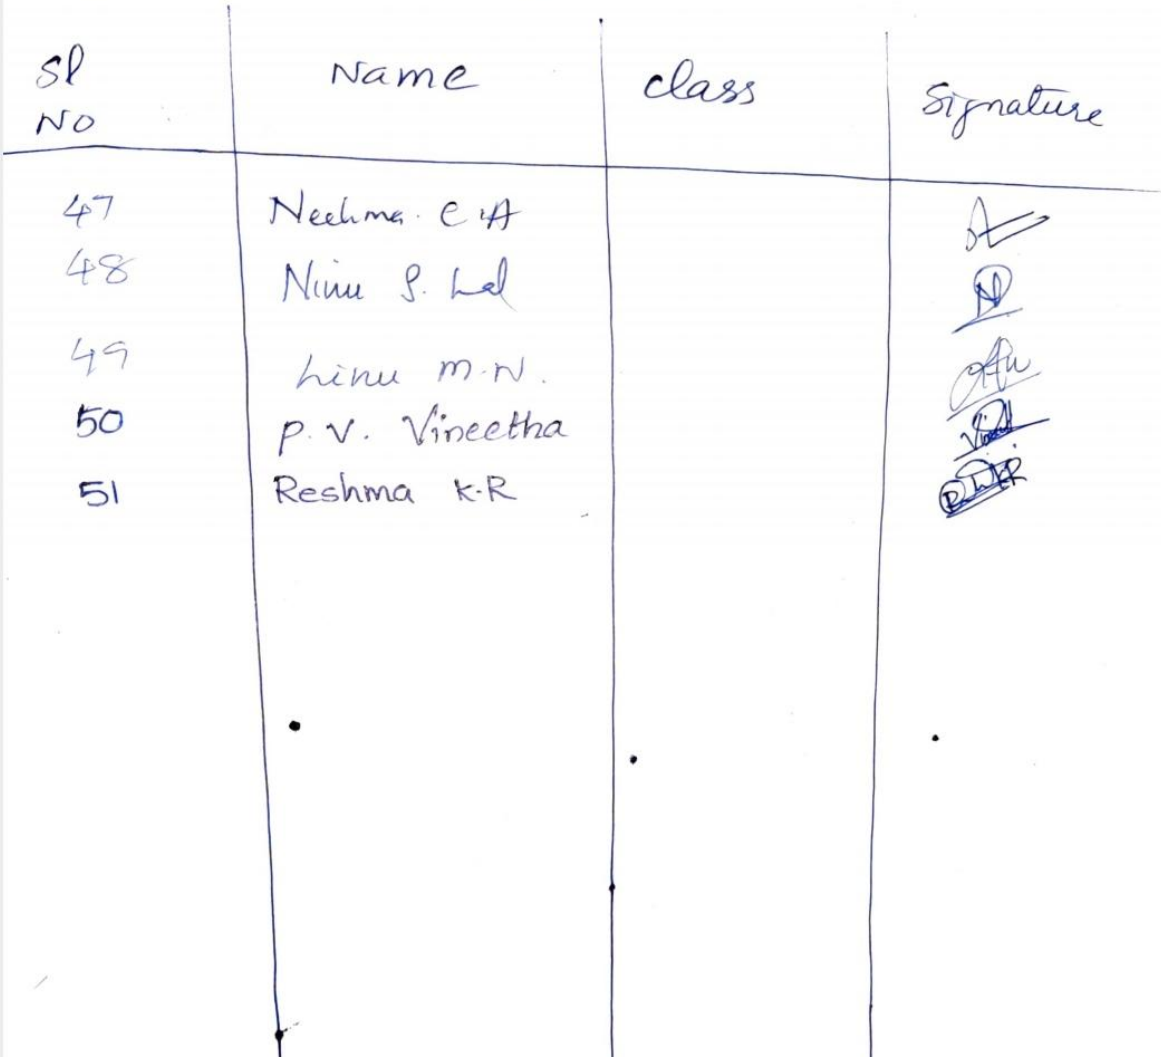 Sl No Name Class Signature
47 Neehma C.A
48 Ninu S. Lal
49 Linu M.N.
50 P. V. Vineetha
51 Reshma K.R